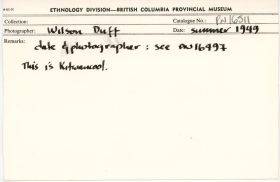 ETHNOLOGY DIVISION—BRITISH COLUMBIA PROVINCIAL MUSEUM
Collection: Catalogue No.: PN16511
Photographer: Wilson Duff Date: summer 1949
Remarks: date & photographer: see PN16497
This is Kitwancool.